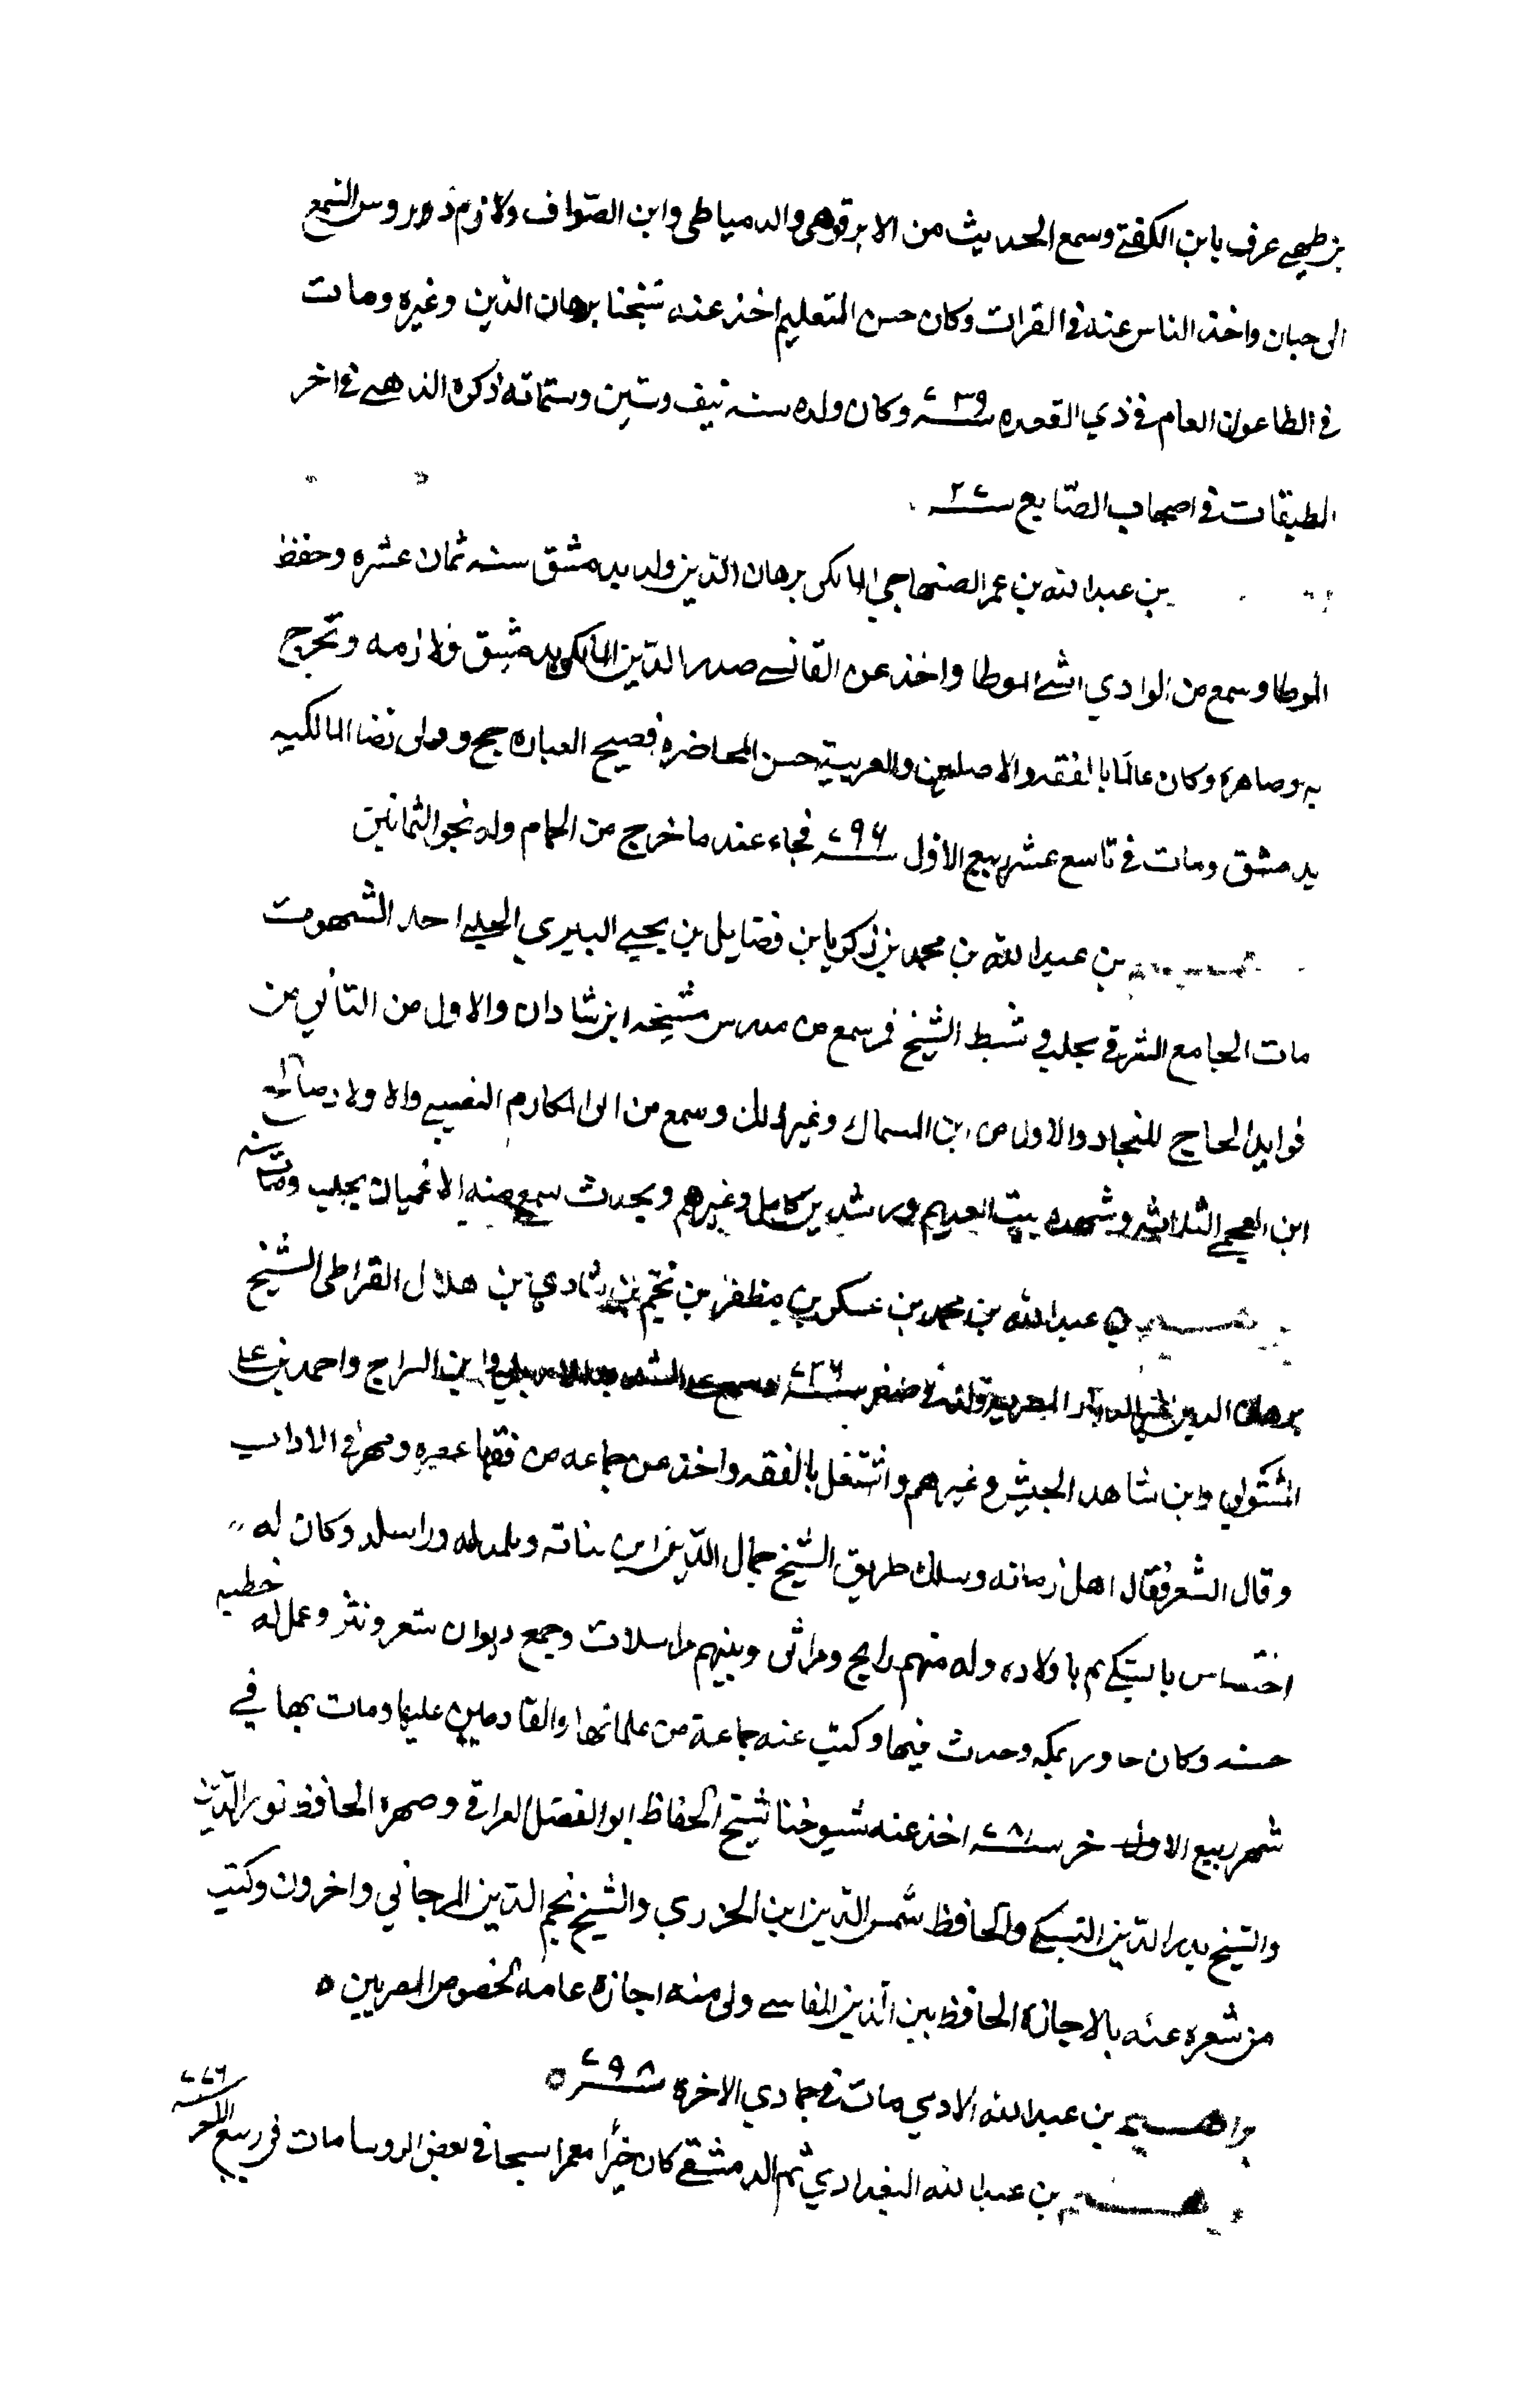 عرف بابن الكفتي وسمع الحديث من الابرقوهي والدمياطي وابن الصواف ولازم دروس الشمع
الى حبان واخذ الناس عنه في القرات وكان حسن التعليم اخذ عنه شيخنا برهان الدين وغيره ومات
في الطاعون العام في ذي القعده وكان ولده سنه نيف وستين وستمائه ذكره الذهبي في اخر
الطبقات في اصحاب الصايع
بن عبد الله بن عمر الصنهاجي المالكي برهان الدين ولد بدمشق سنه ثمان عشره وحفظ
الموطا وسمع من الوادي اشي الموطا واخذ عن القاضي صدر الدين المالكي بدمشق ولازمه وتخرج
به وصاهره وكان عالما بالفقه والاصلين والعربية حسن المحاضره فصيح العباره حج وولى قضا المالكيه
بدمشق ومات في تاسع عشر ربيع الاول ٧٩٦ فجاء عند ما خرج من الحمام وله نحو الثمانين
بن عبد الله بن محمد بن زكريا بن فضايل بن يحيي البيري الحلبي احد الشهود
الجامع الشرقي بحلب سمع من مشيخه ابن شادان والاول من الثاني من
فوايد الحاج للنجاد والاول من ابن السماك وغير ذلك وسمع من ابي المكارم النصيبي والاولاد صالح
ابن العجمي الثلاثه وشهده بيت العديم ورشد بن كامل وغيرهم وحدث سمع منه الاعيان بحلب ومات سنه
بن عبد الله بن محمد بن عسكر بن مظفر بن نجم بن شادي بن هلال القراطي الشيخ
برهان الدين ٧٢٦ وابن السراج واحمد بن علي
المشتولي وابن شاهد الجيش وغيرهم واشتغل بالفقه واخذ عن جماعه من فقها عصره ومهر في الاداب
وقال الشعر ففاق اهل زمانه وسلك طريق الشيخ جمال الدين ابن نباته وتلمذ له وراسله وكان له
اختصاص بالسبكي ثم باولاده وله منهم مدايح ومراثي وبينهم مراسلات وجمع ديوان شعر ونثر وعمل له خطبه
حسنه وكان جاور بمكه وحدث فيها وكتب عنه جماعة من علمائها والقادمين عليها ومات بها في
شهر ربيع الاول اخذ عنه شيوخنا شيخ الحفاظ ابو الفضل العراقي وصهره الحافظ نور الدين
والشيخ بدر الدين السبكي والحافظ شمس الدين ابن الجزري والشيخ نجم الدين المرجاني واخرون وكتب
من شعره عنه بالاجازه الحافظ الدين الفاسي ولى منه اجازه عامه لخصوص المصريين ه
براهيم بن عبد الله الادمي مات في جمادي الاخرة ٧٩٨ ه
بن عبد الله البغدادي ثم الدمشقي كان خيرا معمرا في بعض الروسا مات في ربيع الاخر ٧٧٦